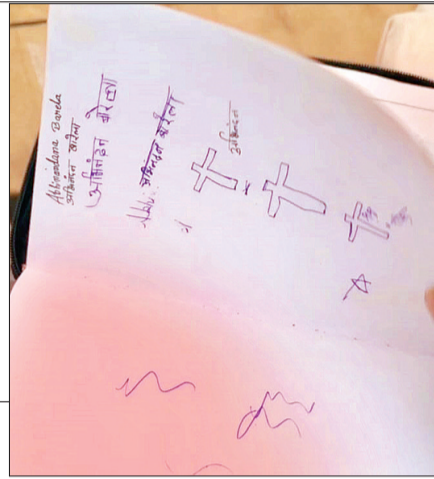 Abhinandana Barela
अभिनंदन बरेला
अभिनंदन बरेला
अभिनंदन बरेला
अभिनंदन